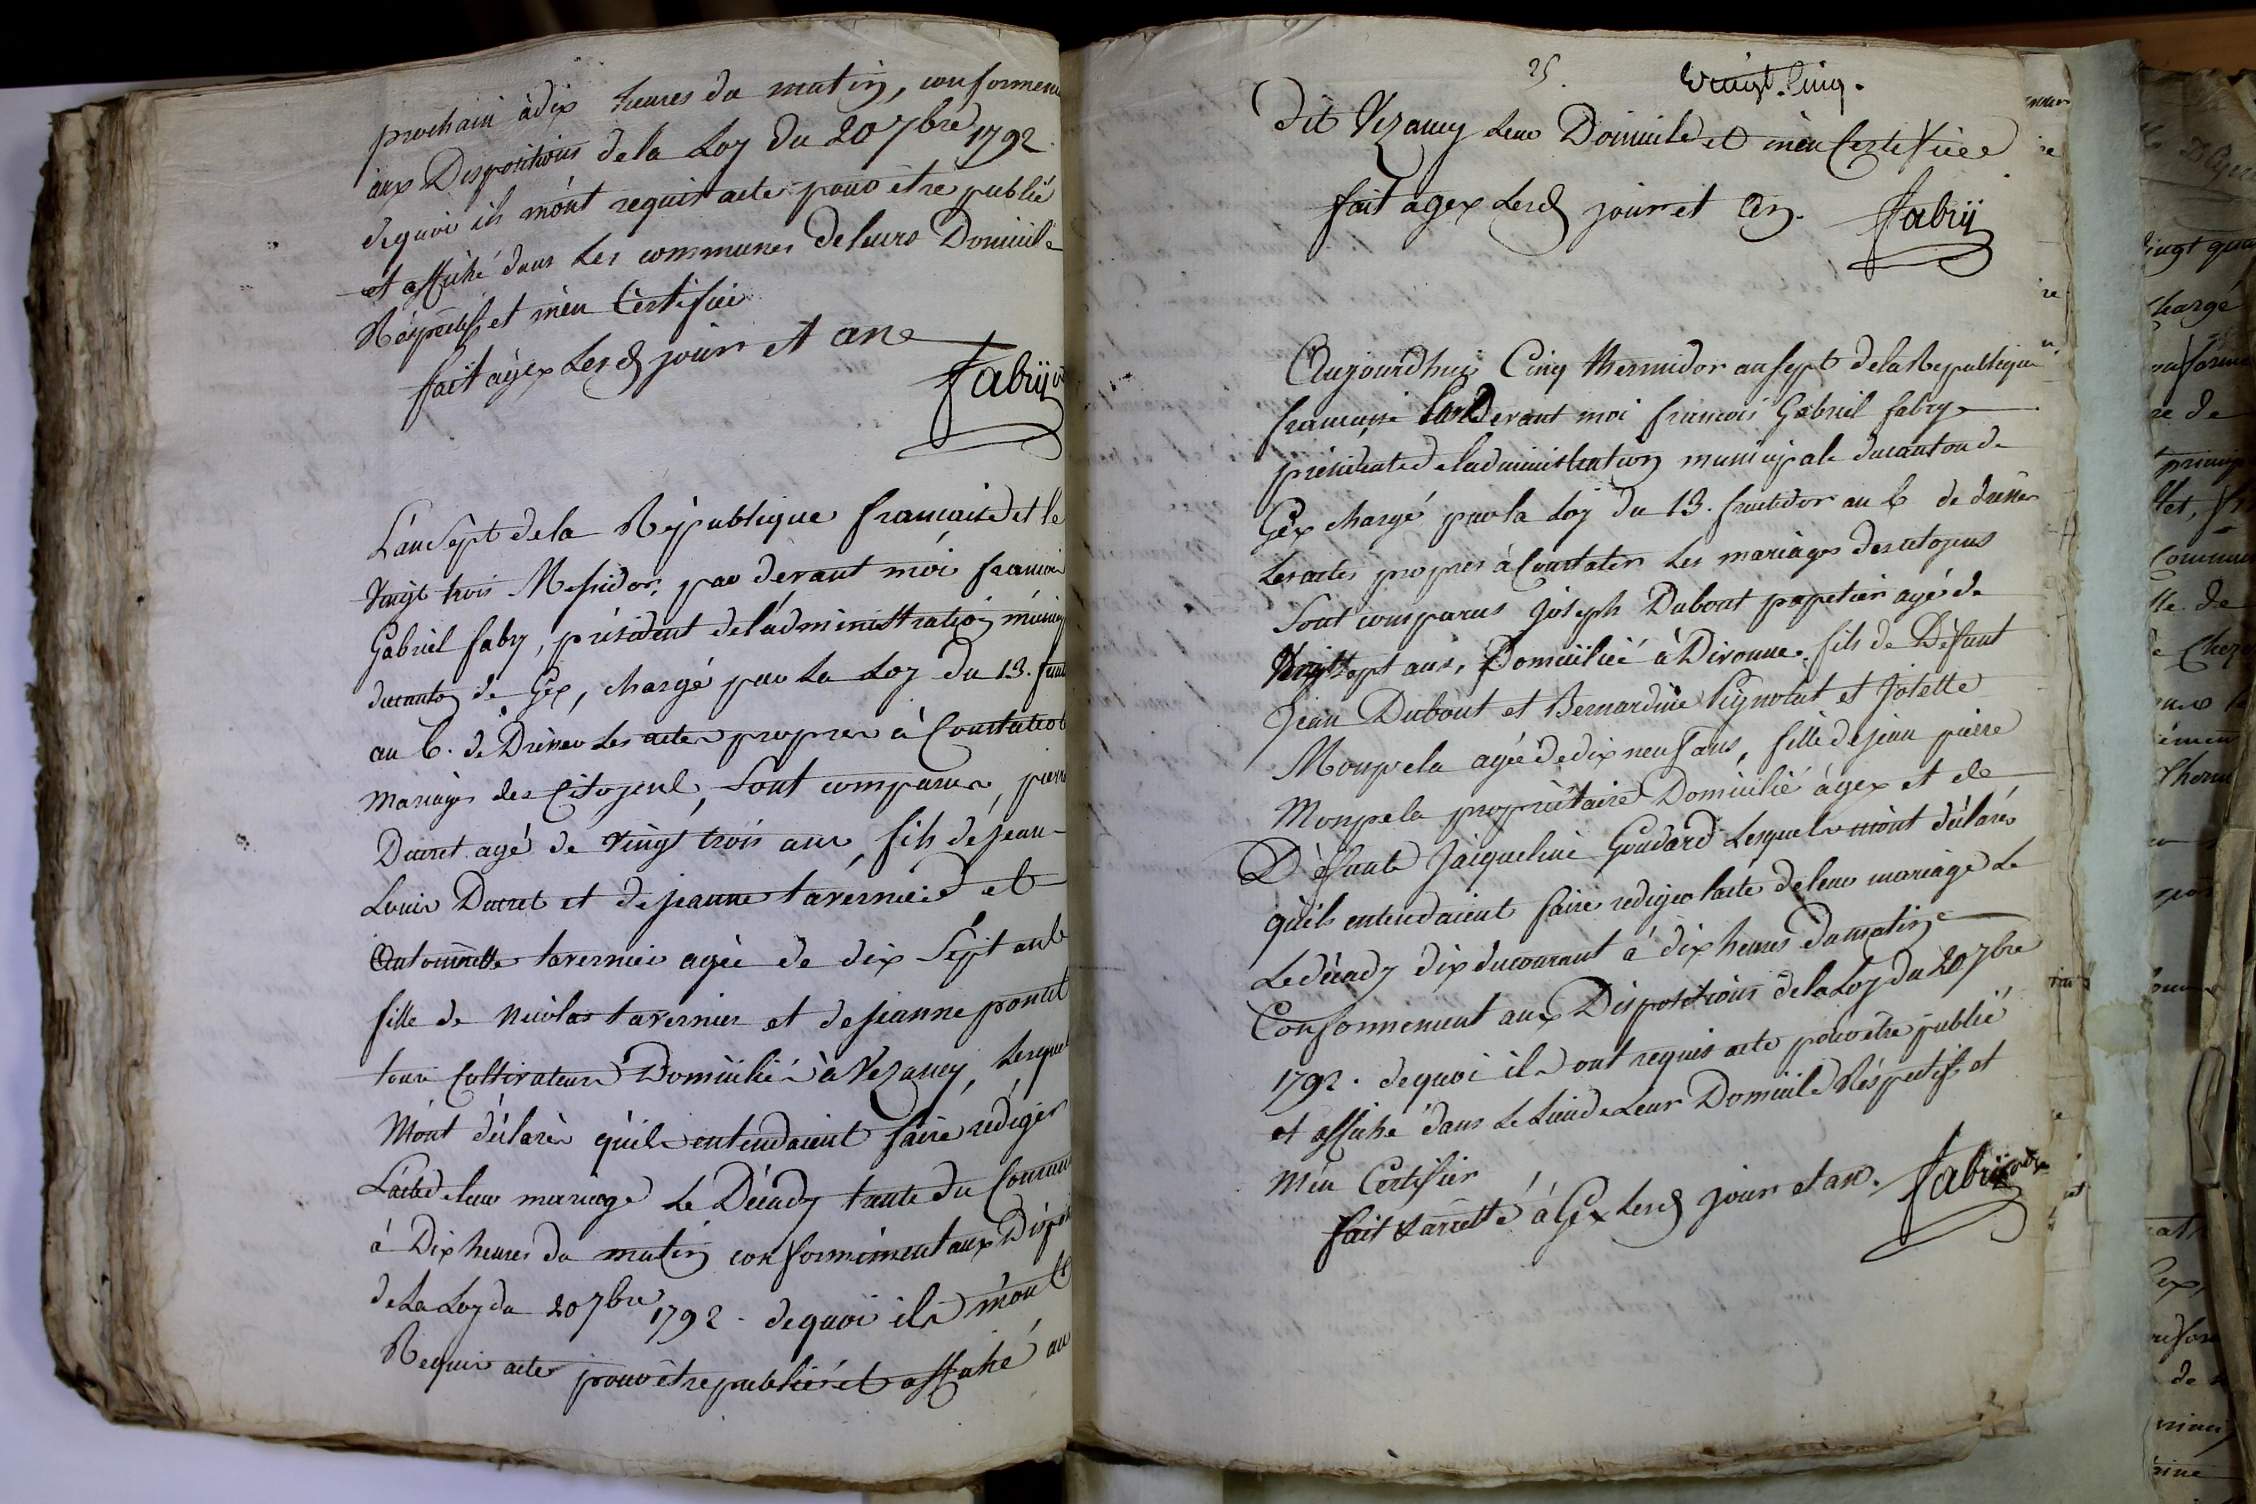 prochain à dix heures du matin, conformem
aux Dispositions de la Loy du 20 7bre 1792.
de quoi ils m'ont requis acte pour être publié
et affiché dans les communes de leurs Domicile
Réspectifs et m'en Certifié
fait à gex Lesd jour et an
Fabrÿ
L'an Sept de la République francaise et le
Vingt trois Messidor, par devant moi francois
Gabriel fabry, président de l'administration munici
du canton de Gex, chargé par la Loy du 13. fruct
an 6. de Dresser les actes propres à Constater l
mariages des Citoyens, Sont comparus, pierre
Ducret agé de vingt trois ans, fils de jean
Louis Ducret et de jeanne tavernier et
Antoinette tavernier agée de dix Sept ans
fille de nicolas tavernier et de jeanne
tous Cultivateurs Domicilié à Vezancy, Lesquel
M'ont déclarés qu'ils entendaient faire rédiger
L'acte de leur mariage Le Décady trente du Courant
à Dix heures du matin conformément aux Dispos
de La Loy du 20 7bre 1792. de quoi ils m'ont
Requis acte pour être publié et affiché au
25. Vingt. Cinq.
dit Vezancy Leur Domicile et m'en Certifiée
fait a gex Lesd jour et an. Fabrÿ
Aujourdhui Cinq thermidor an sept de la Republique
francaise par Devant moi francois Gabriel fabry
président de l'administration municipale du canton de
Gex chargé par la Loy du 13. fructidor an 6 de dresser
Les actes propres à Constater les mariages des citoyens
Sont comparus Joseph Dubout papetier agé de
Vingt sept ans, Domicilié à Divonne, fils de Défunt
Jean Dubout et Bernardine Pignolat et Josette
Monpela agée de dix neuf ans, fille de jean pierre
Monpela propriétaire Domicilié à gex et de
Défunte Jacqueline Goudard Lesquels m'ont déclarés
qu'ils entendaient faire rediger l'acte de leur mariage Le
Le décady dix du courant à dix heures du matin
Conformement aux Dispositions de la Loy du 20 7bre
1792. de quoi ils ont requis acte pour être publié
et affiché dans Le Lieu de Leur Domicile Réspectifs et
M'en Certifier
fait & arretté à Gex Lesd jour et an. Fabrÿ